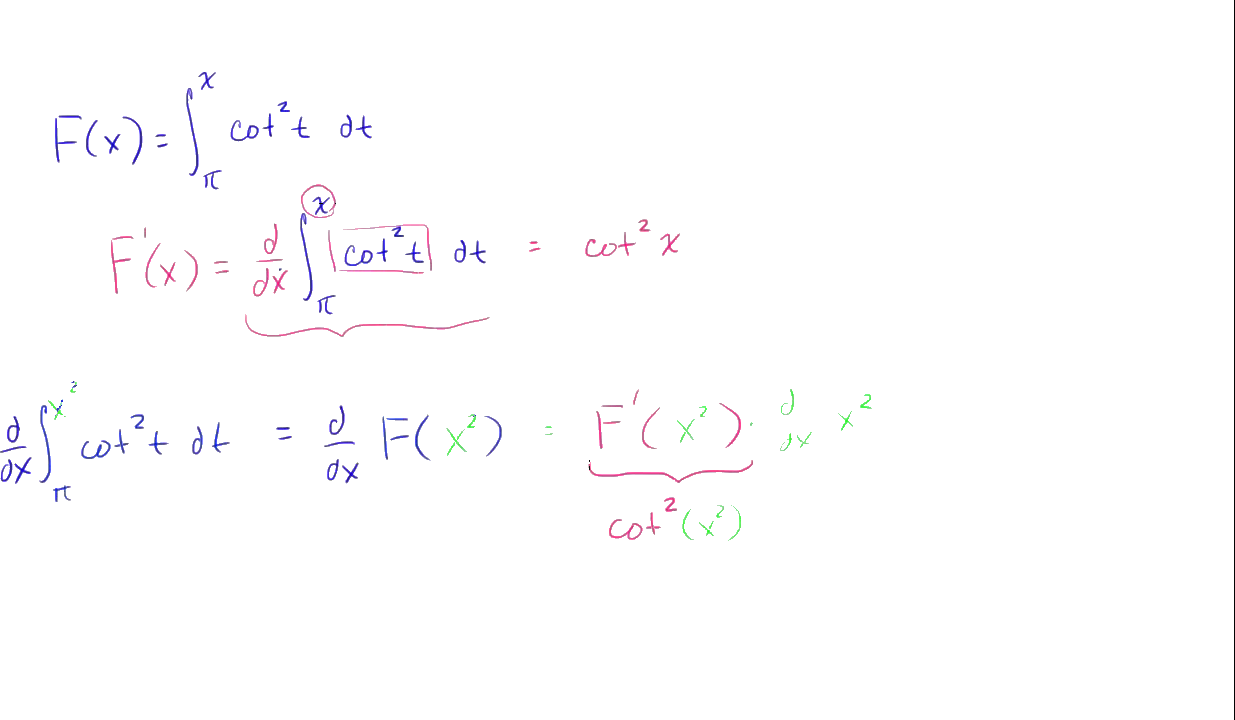 F(x) = ∫_π^x cot²t dt
F'(x) = d/dx ∫_π^x cot²t dt = cot² x
d/dx ∫_π^x² cot²t dt = d/dx F(x²) = F'(x²) · d/dx x²
cot²(x²)